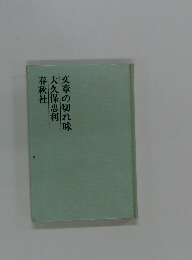 文章の切れ味
大久保忠利
春秋社